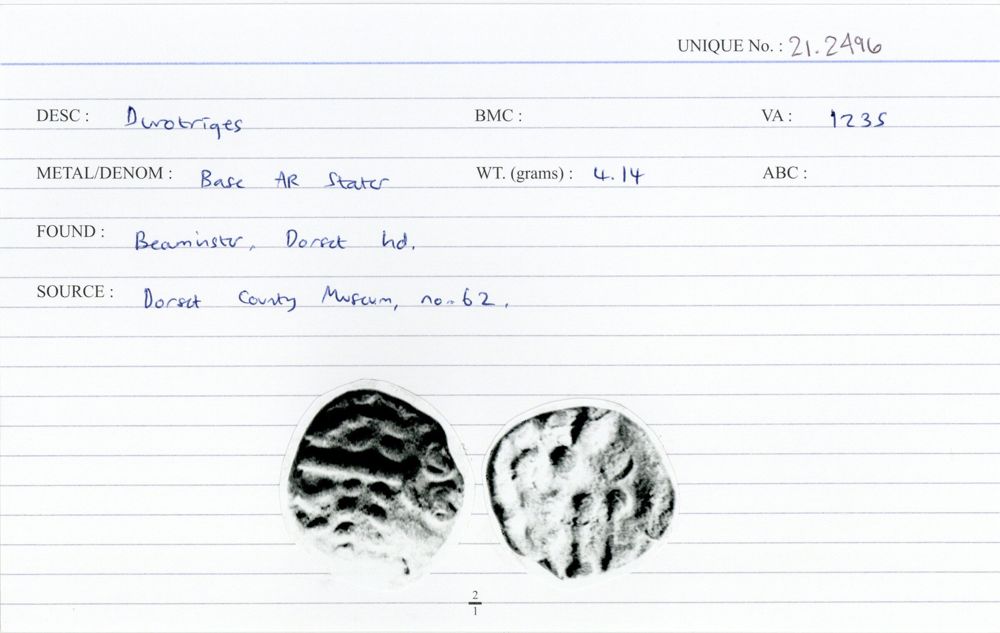 UNIQUE No. : 21.2496
DESC : Durotriges BMC : VA : 1235
METAL/DENOM : Base AR Stater WT. (grams) : 4.14 ABC :
FOUND : Beaminster, Dorset hd.
SOURCE : Dorset County Museum, no. 62.
2
1